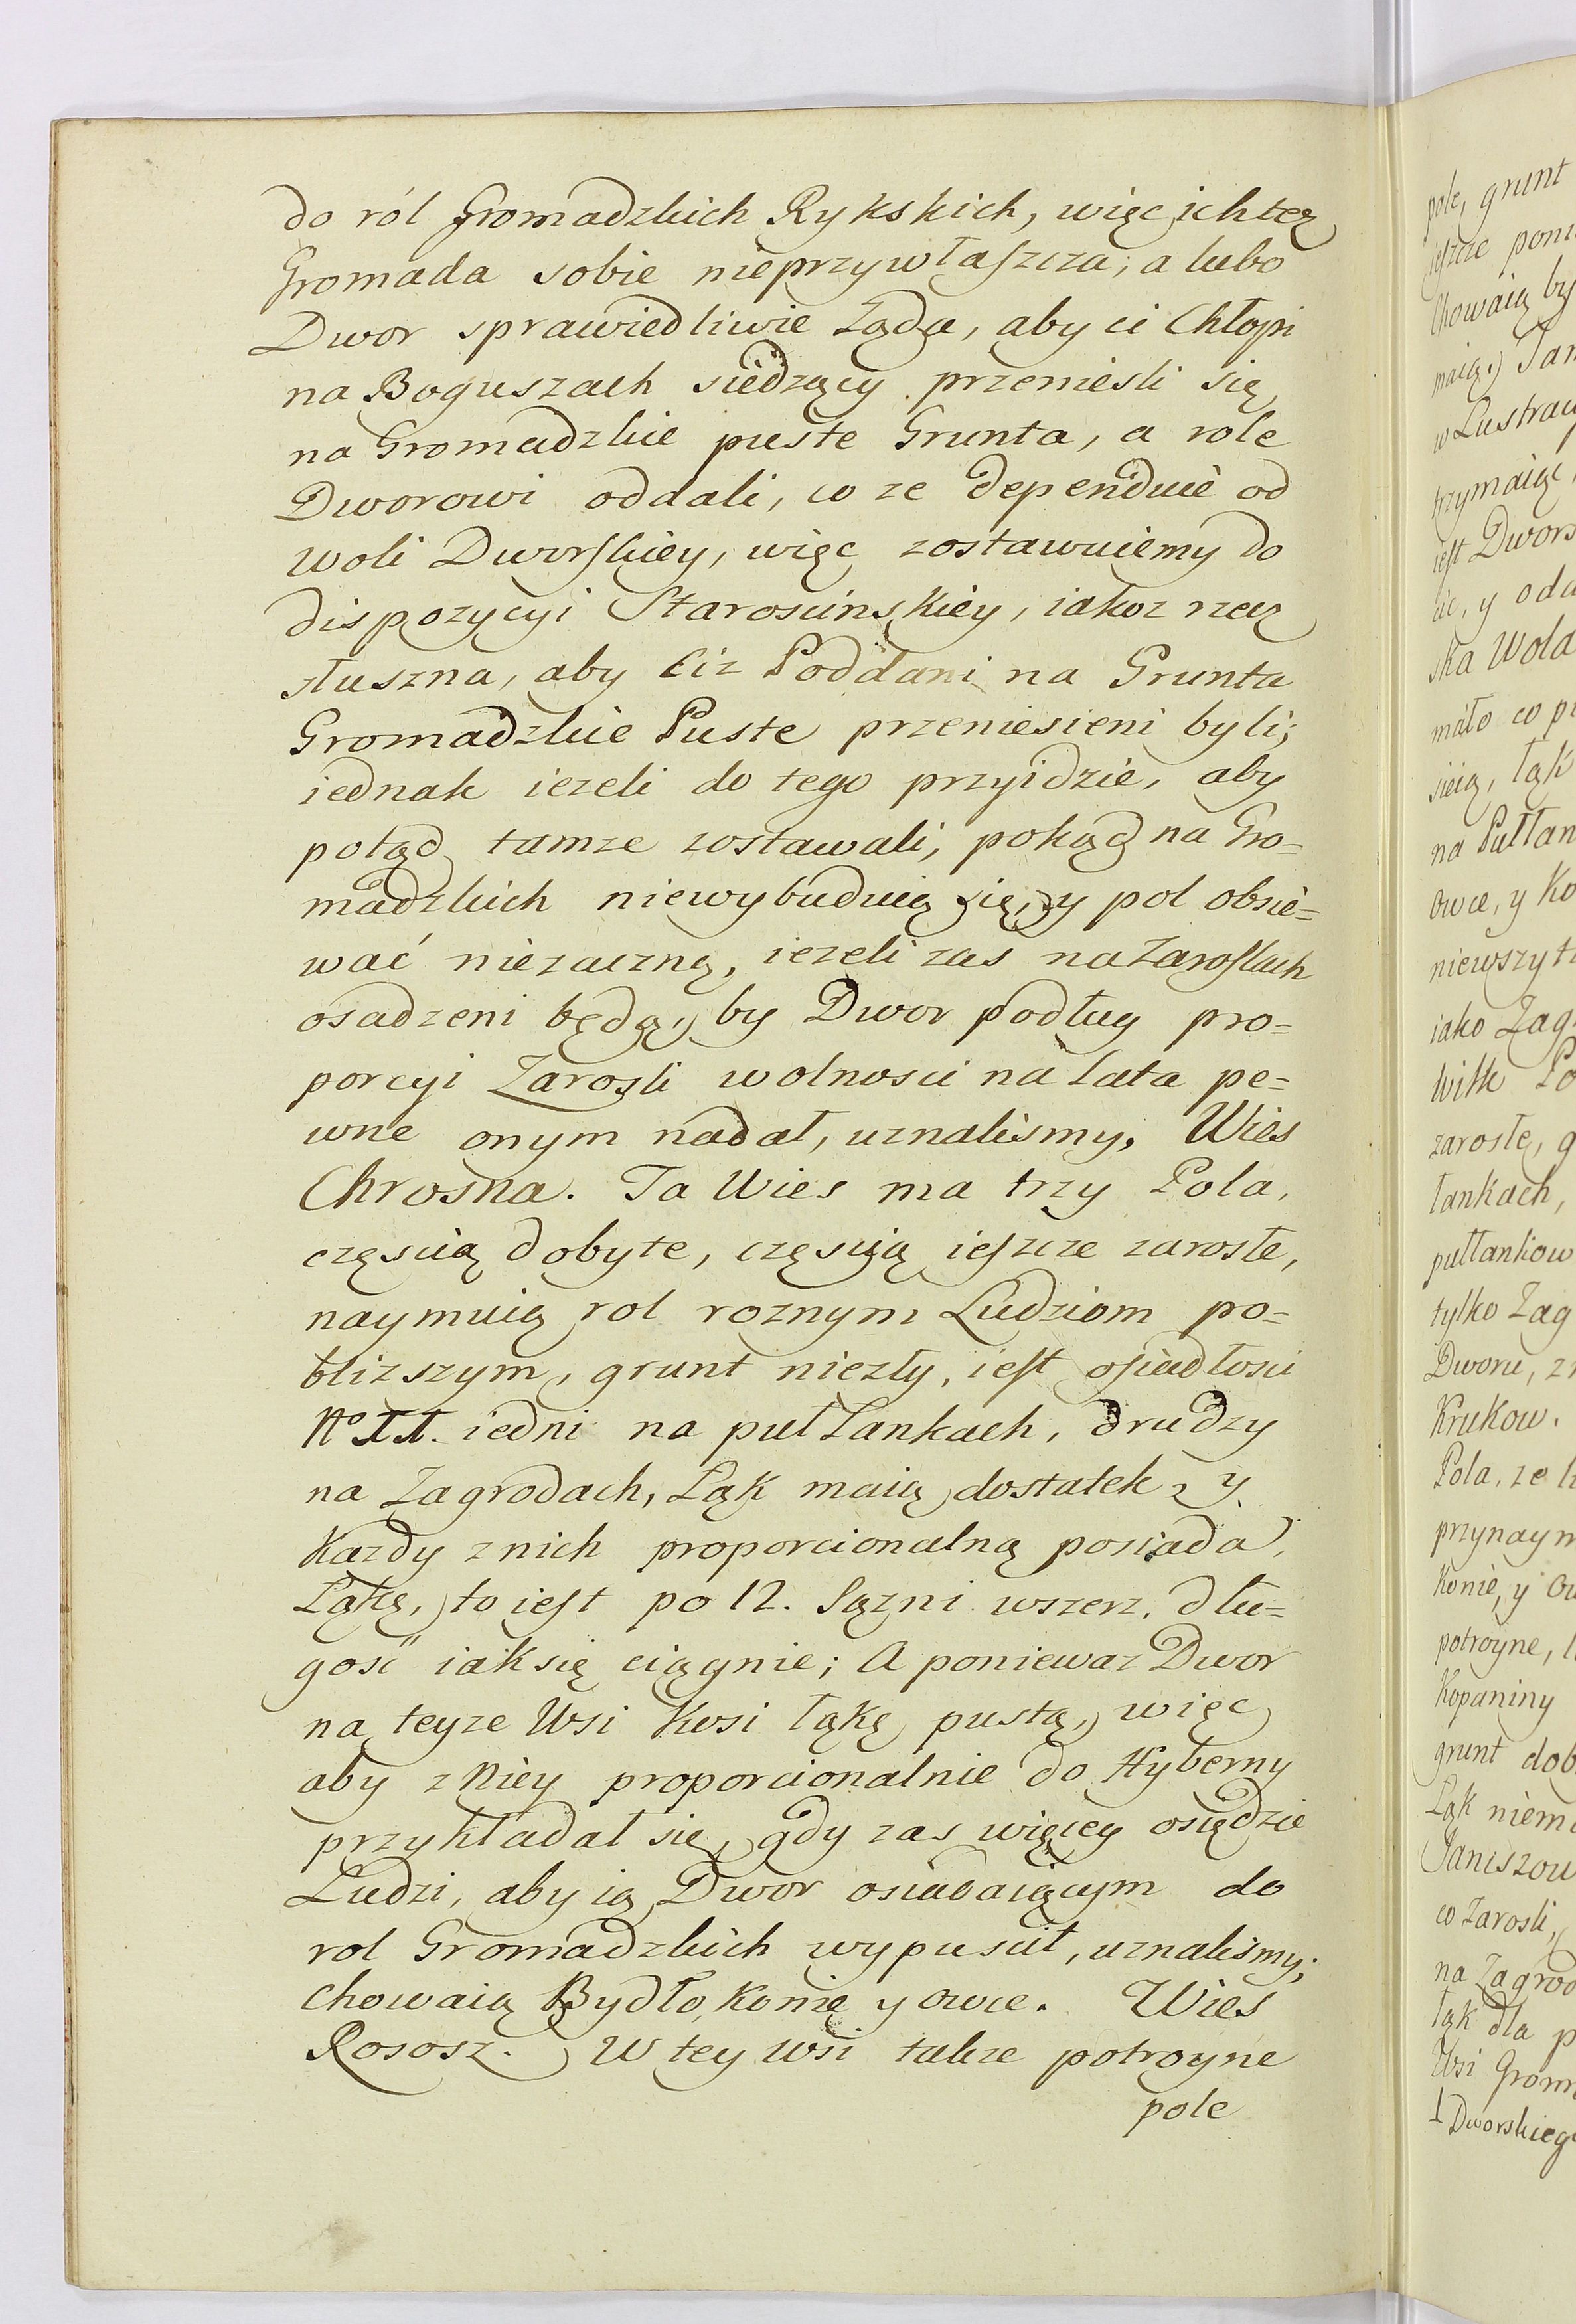 do ról Gromadzkich Rykskich, więc ich też
Gromada sobie nieprzywłaszcza; a lubo
Dwor sprawiedliwie żąda, aby ci Chłopi
na Boguszach siedzący przenieśli się
na Gromadzkie puste Grunta, a role
Dworowi oddali, co ze dependuie od
woli Dworskiey, więc zostawuiemy do
dispozycyi Starościnskiey, iakoż rzecz
słuszna, aby Ciż Poddani na Grunta
Gromadzkie Puste przeniesieni byli;
iednak ieżeli do tego przyidzie, aby
potąd tamże zostawali, pokąd na Gro=
madzkich niewybuduią się, y pol obsie=
wać niezaczną, ieżeli zas na Zaroslach
osadzeni będą, by Dwor podług pro=
porcyi Zarosli wolnosci na Lata pe=
wne onym nadał, uznaliśmy. Wies
Chrosna. Ta Wies ma trzy Pola,
częscią dobyte, częscią ieszcze zarosłe,
naymuią rol roznym Ludziom po=
bliższym, grunt niezły, iest osiadłosci
No 11. iedni na puł Łankach, drudzy
na Zagrodach, Łąk maią dostatek, y
Kazdy znich proporcionalną posiada
Łąkę, to iest po 12. Sążni wszerz, dłu=
gość iak się ciągnie; A ponieważ Dwor
na teyze Wsi Kosi łąkę pustą, więc
aby z Niey proporcionalnie do Hyberny
przykładał się, gdy zas więcey osiędzie
Ludzi, aby ią Dwor osiadaiącym do
rol Gromadzkich wypuscił, uznaliśmy;
chowaią Bydło, Konie y owce. Wies
Rososz. W tey wsi także potroyne
pole
pole, grunt
ieszcze
chowaią by
maią.
w Lustracy
trzymaiąc,
iest Dwors
y odd
ska Wola
mało co p
sieią, łąk
na Pułłan
Owce, y Ko
iako Zag
zarosłe, g
łankach,
pułłankow
tylko Zag
Dworu, z
Krukow.
Pola, ze
przynaym
Konie, y Ow
potroyne,
Kopaniny
grunt dob
Łąk niema
Janiszow
co Zarosli,
na Zagrod
łąk dla p
Wsi Grom
Dworskieg